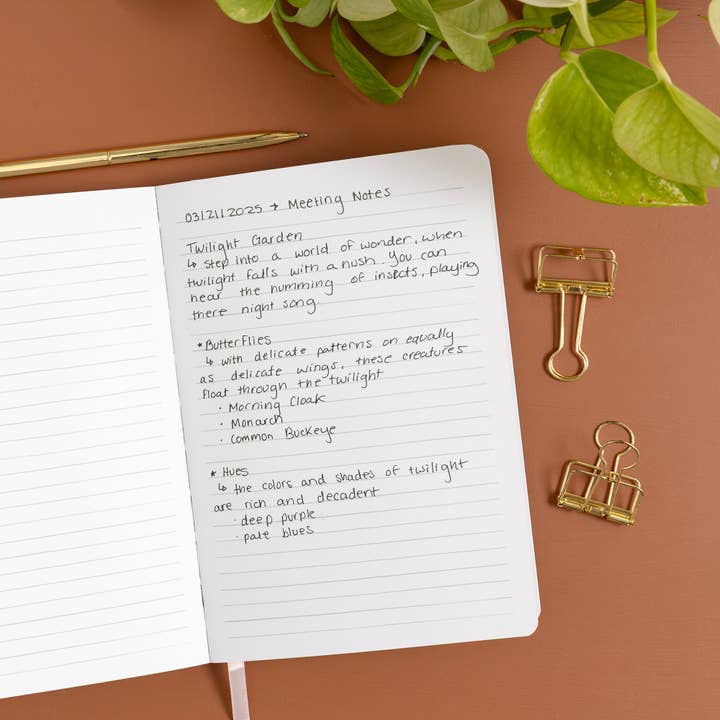 03/21/2025 → Meeting Notes
Twilight Garden
↳ step into a world of wonder, when
twilight falls with a hush. You can
hear the humming of insects, playing
there night song.
* Butterflies
↳ with delicate patterns on equally
as delicate wings, these creatures
float through the twilight
· Morning Cloak
· Monarch
· Common Buckeye
* Hues
↳ the colors and shades of twilight
are rich and decadent
· deep purple
· pale blues